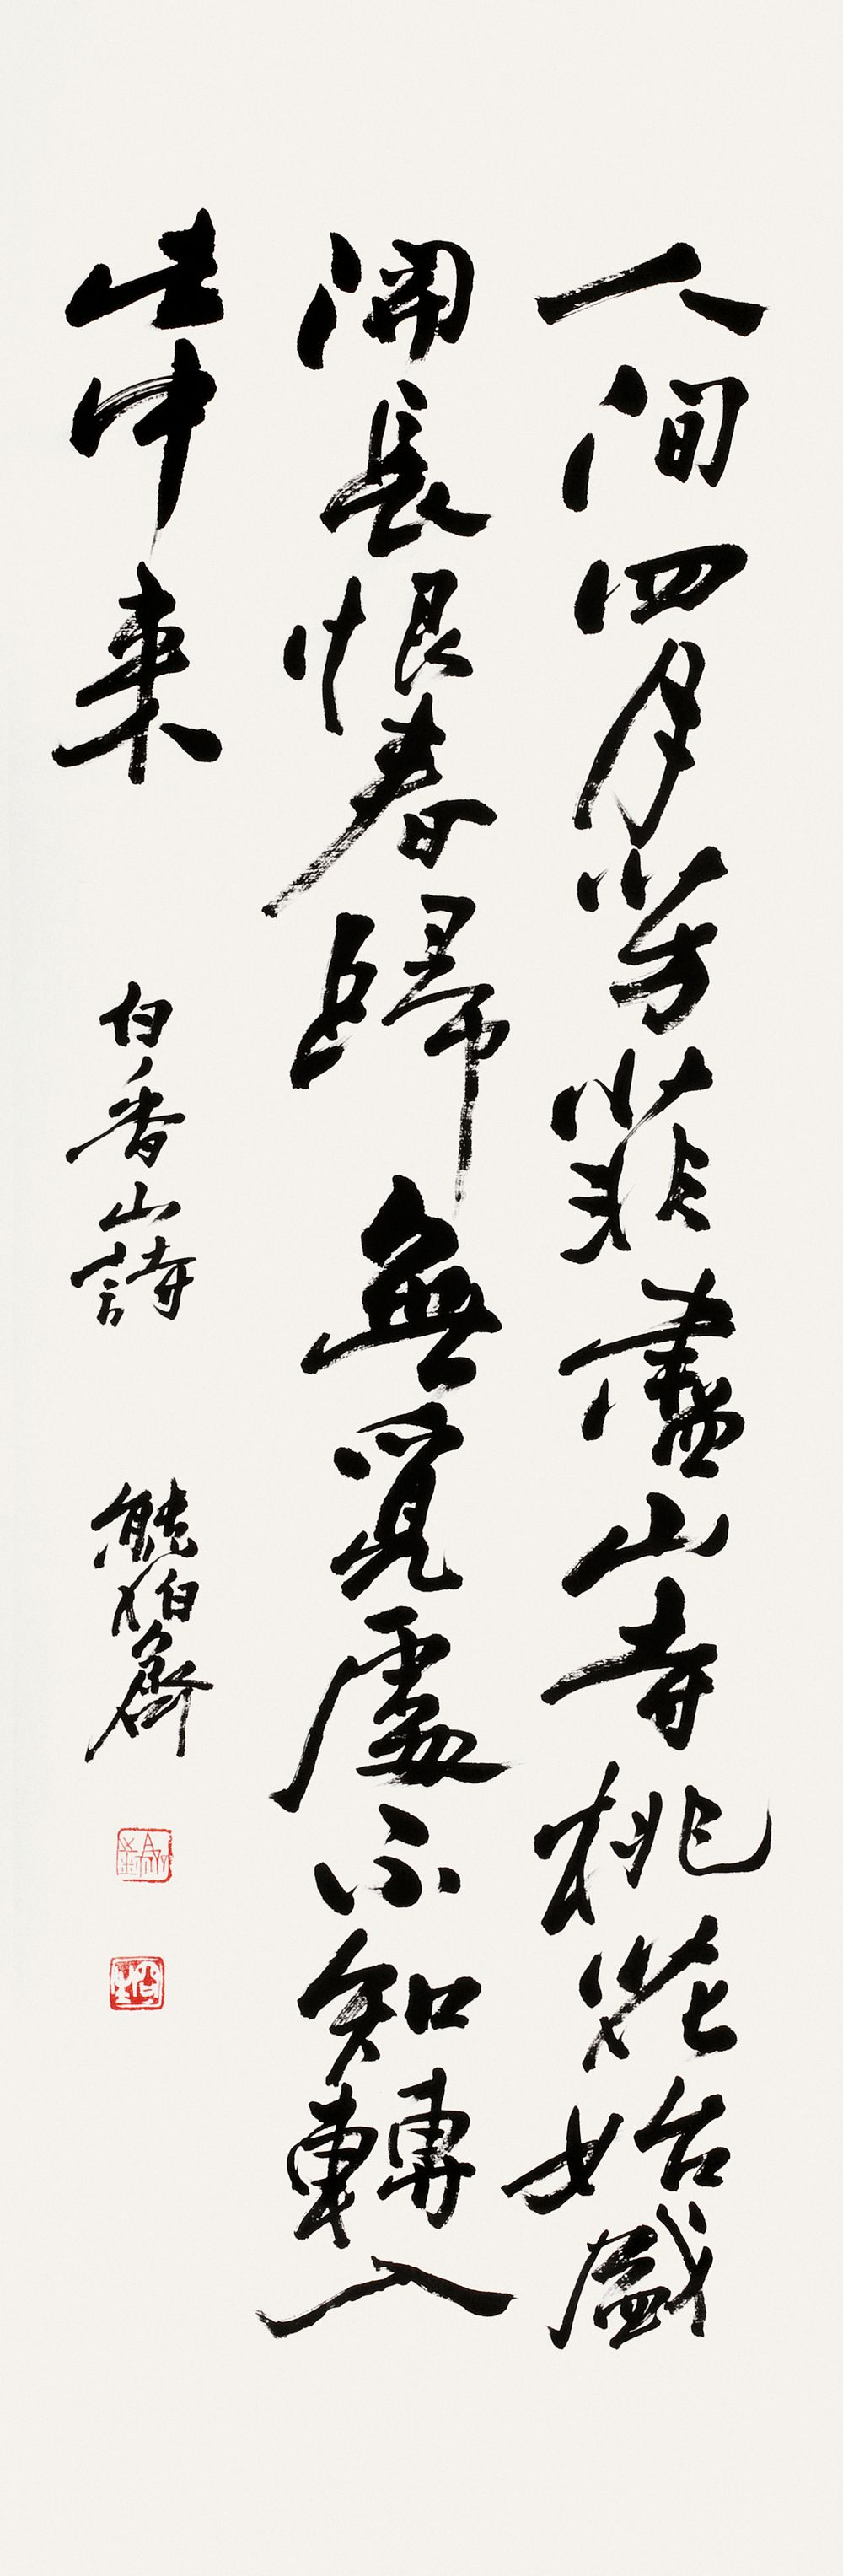 人間四月芳菲盡山寺桃花始盛
開長恨春歸無覓處不知轉入
此中來
白香山詩
熊伯齊